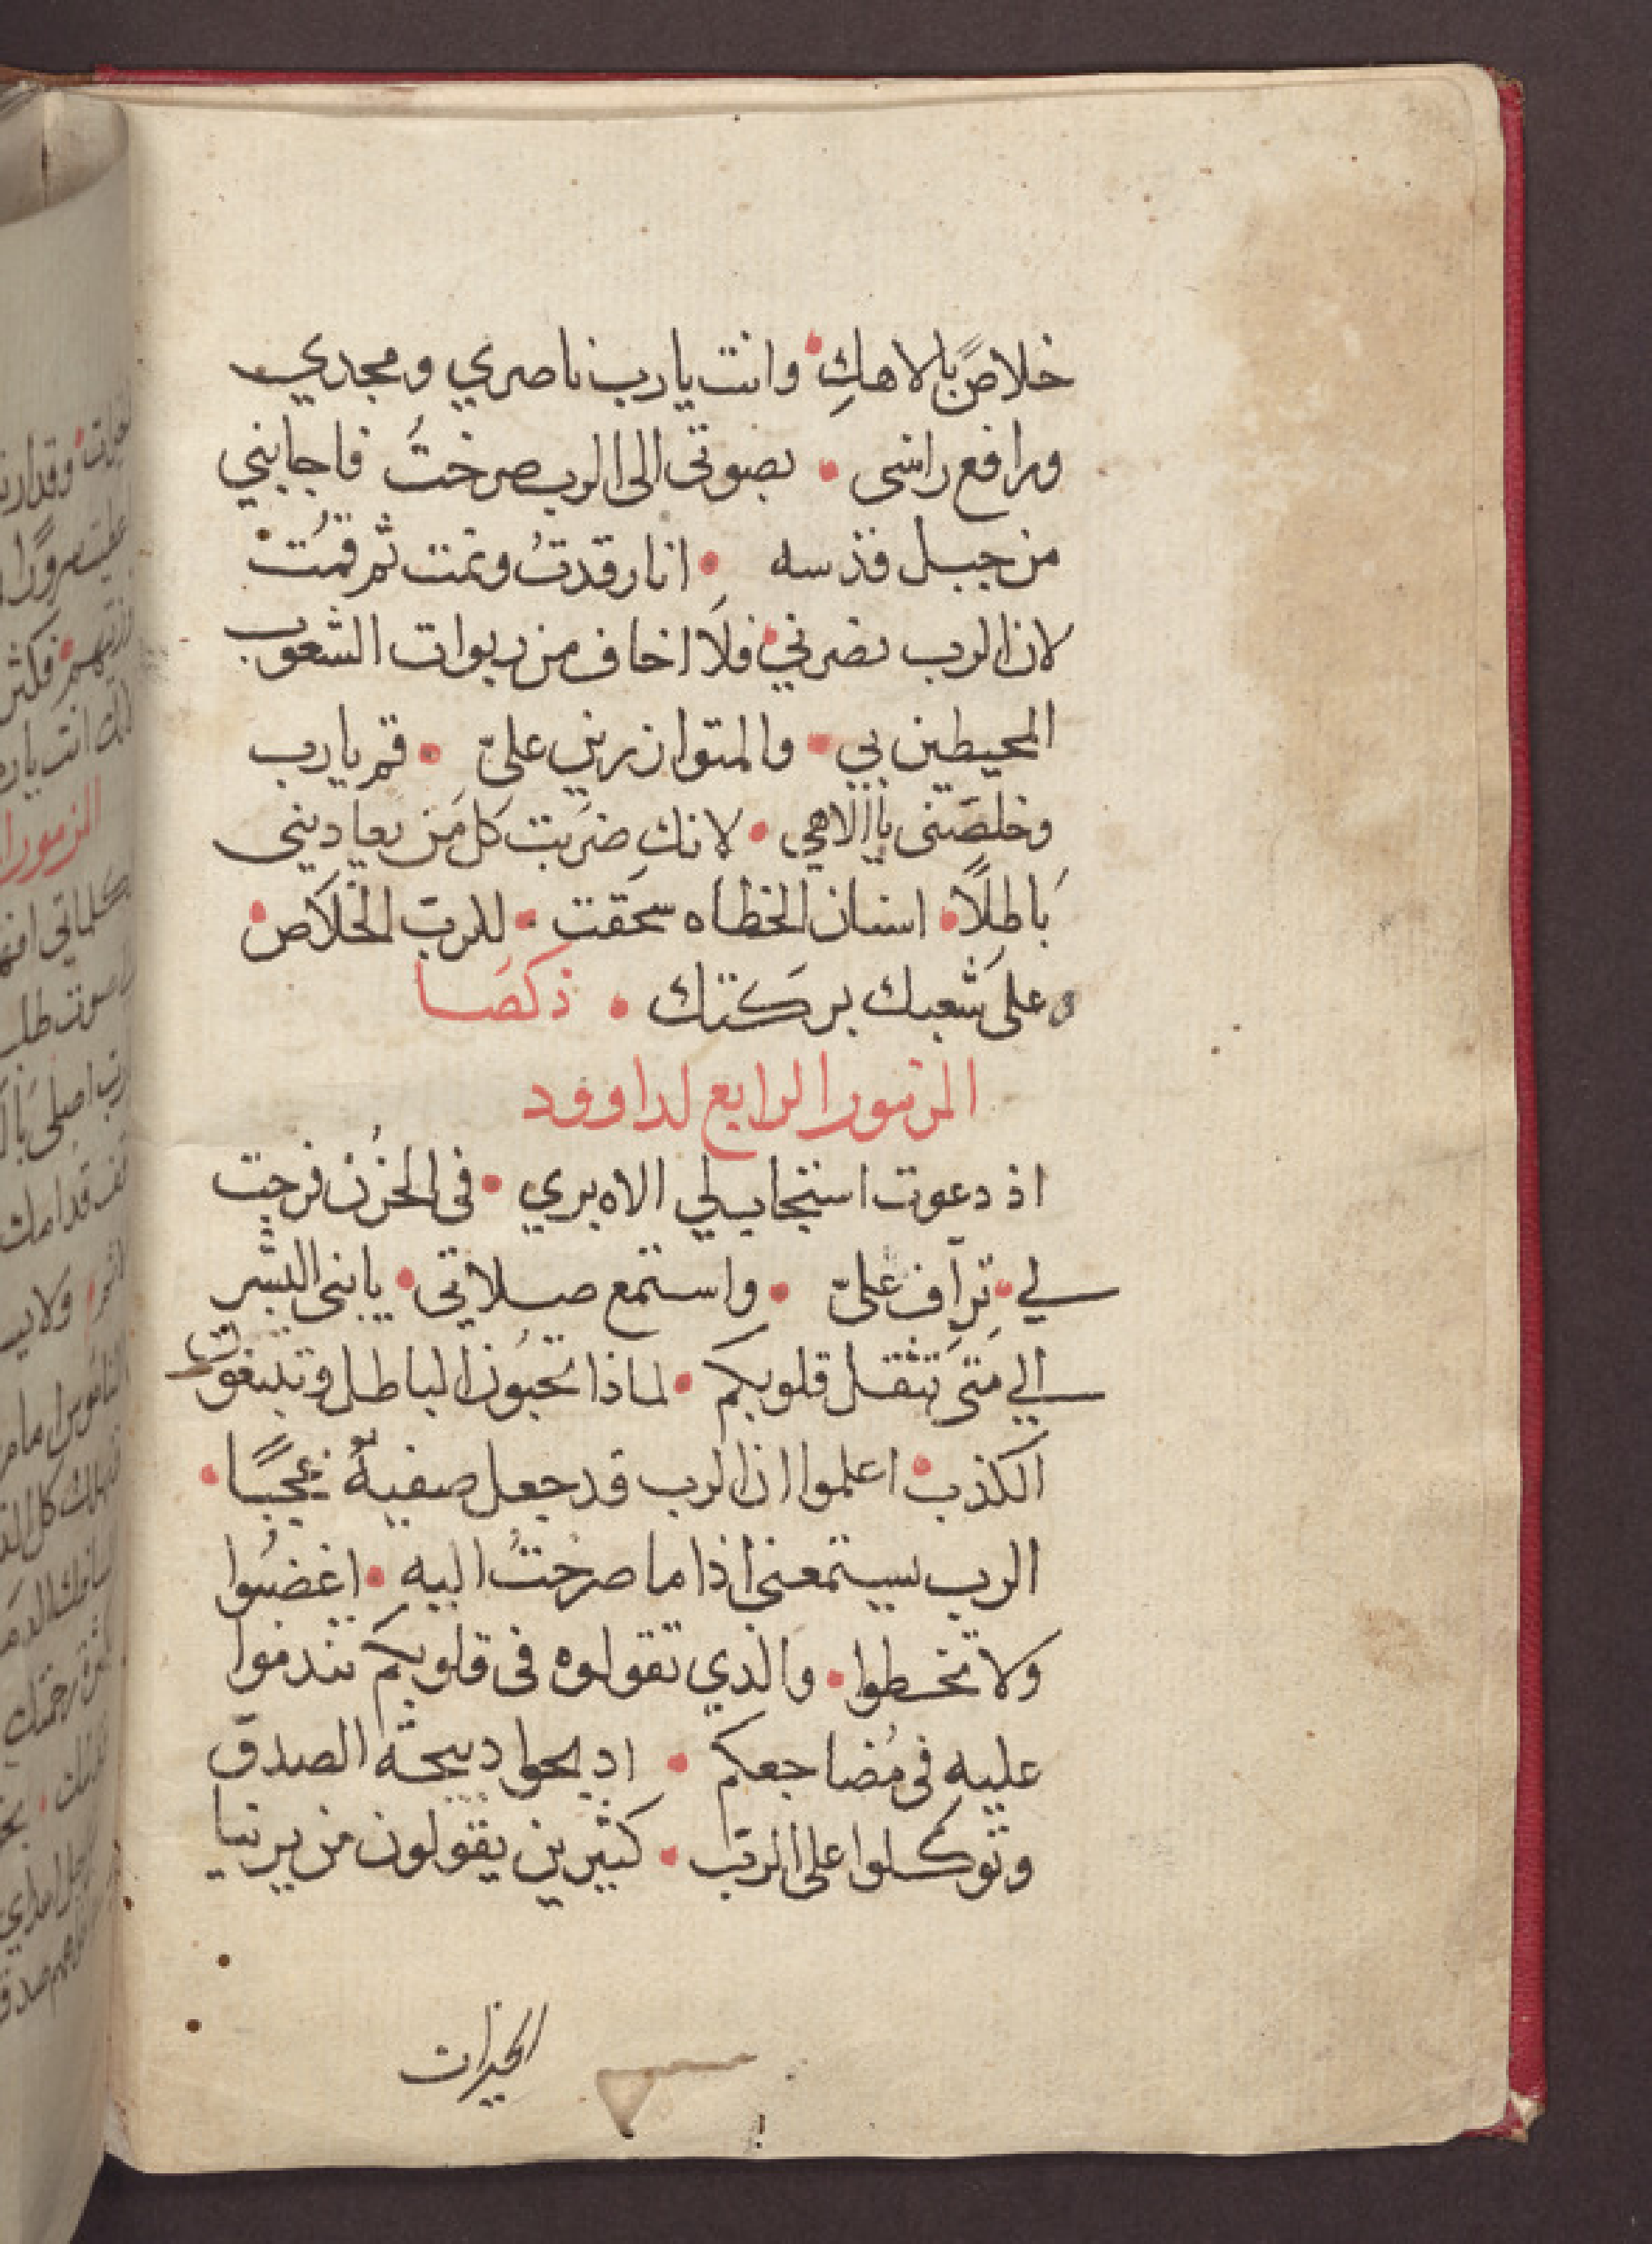 خلاصًا بالاهكِ • وانت يارب ناصري ومجدي
ورافع راسى • بصوتى الى الرب صرختُ فاجابنى
من جبل قدسه • انا رقدتُ ونمت ثم قمُت
لان الرب نصرني • فلا اخاف من ربوات الشعوب
المحيطين بي • والمتوازرين علىّ • قم يارب
وخلصَنى ياالاهي • لانك ضربت كل من يعاديني
بَاطلًا • اسنان الخطاه سحقت • للربّ الخلاص •
على شعبك بركتك • ذكصا
المزمور الرابع لداوود
اذ دعوت استجاب لي الاه بري • فى الحزُن فرجت
لي • ترآف علىّ • واستمع صلاتى • يابنى البشر
الي متى تثقل قلوبكم • لماذا تحبون الباطل وتبتغون
الكذب • اعلموا ان الرب قد جعل صفيهُ عجبًا •
الرب يستمعنى اذا ما صرختُ اليه • اغضبُوا
ولا تخطوا • والذي تقولوه فى قلوبكم تندموا
عليه فى مُضاجعكم • اديحوا دبيحة الصدق
وتوكلوا على الربّ • كثيرين يقولون من يرينا
الخيرات
خيرات • وقد
سرورًا
فكثر
انت يارب
المزمور
كلماتى
صوت طلب
قدامك
ولا
كل
رحمتك